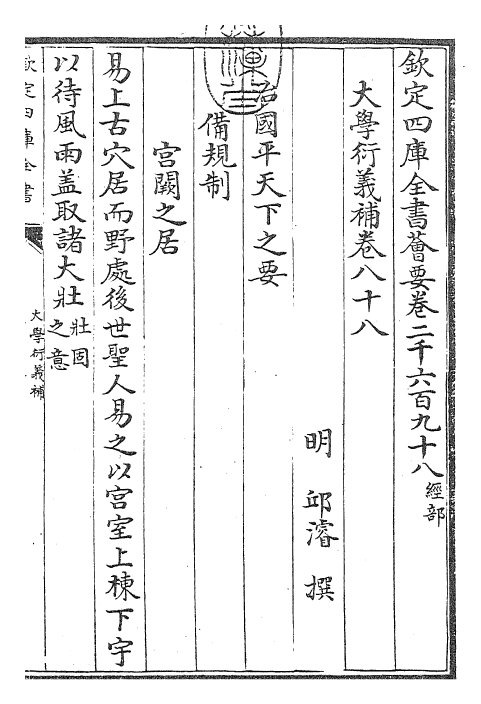 欽定四庫全書薈要卷二千六百九十八 經部
大學衍義補卷八十八
明 邱濬 撰
治國平天下之要
備規制
宮闕之居
易上古穴居而野處後世聖人易之以宮室上棟下宇
以待風雨盖取諸大壯 壯固之意
欽定四庫全書
大學衍義補